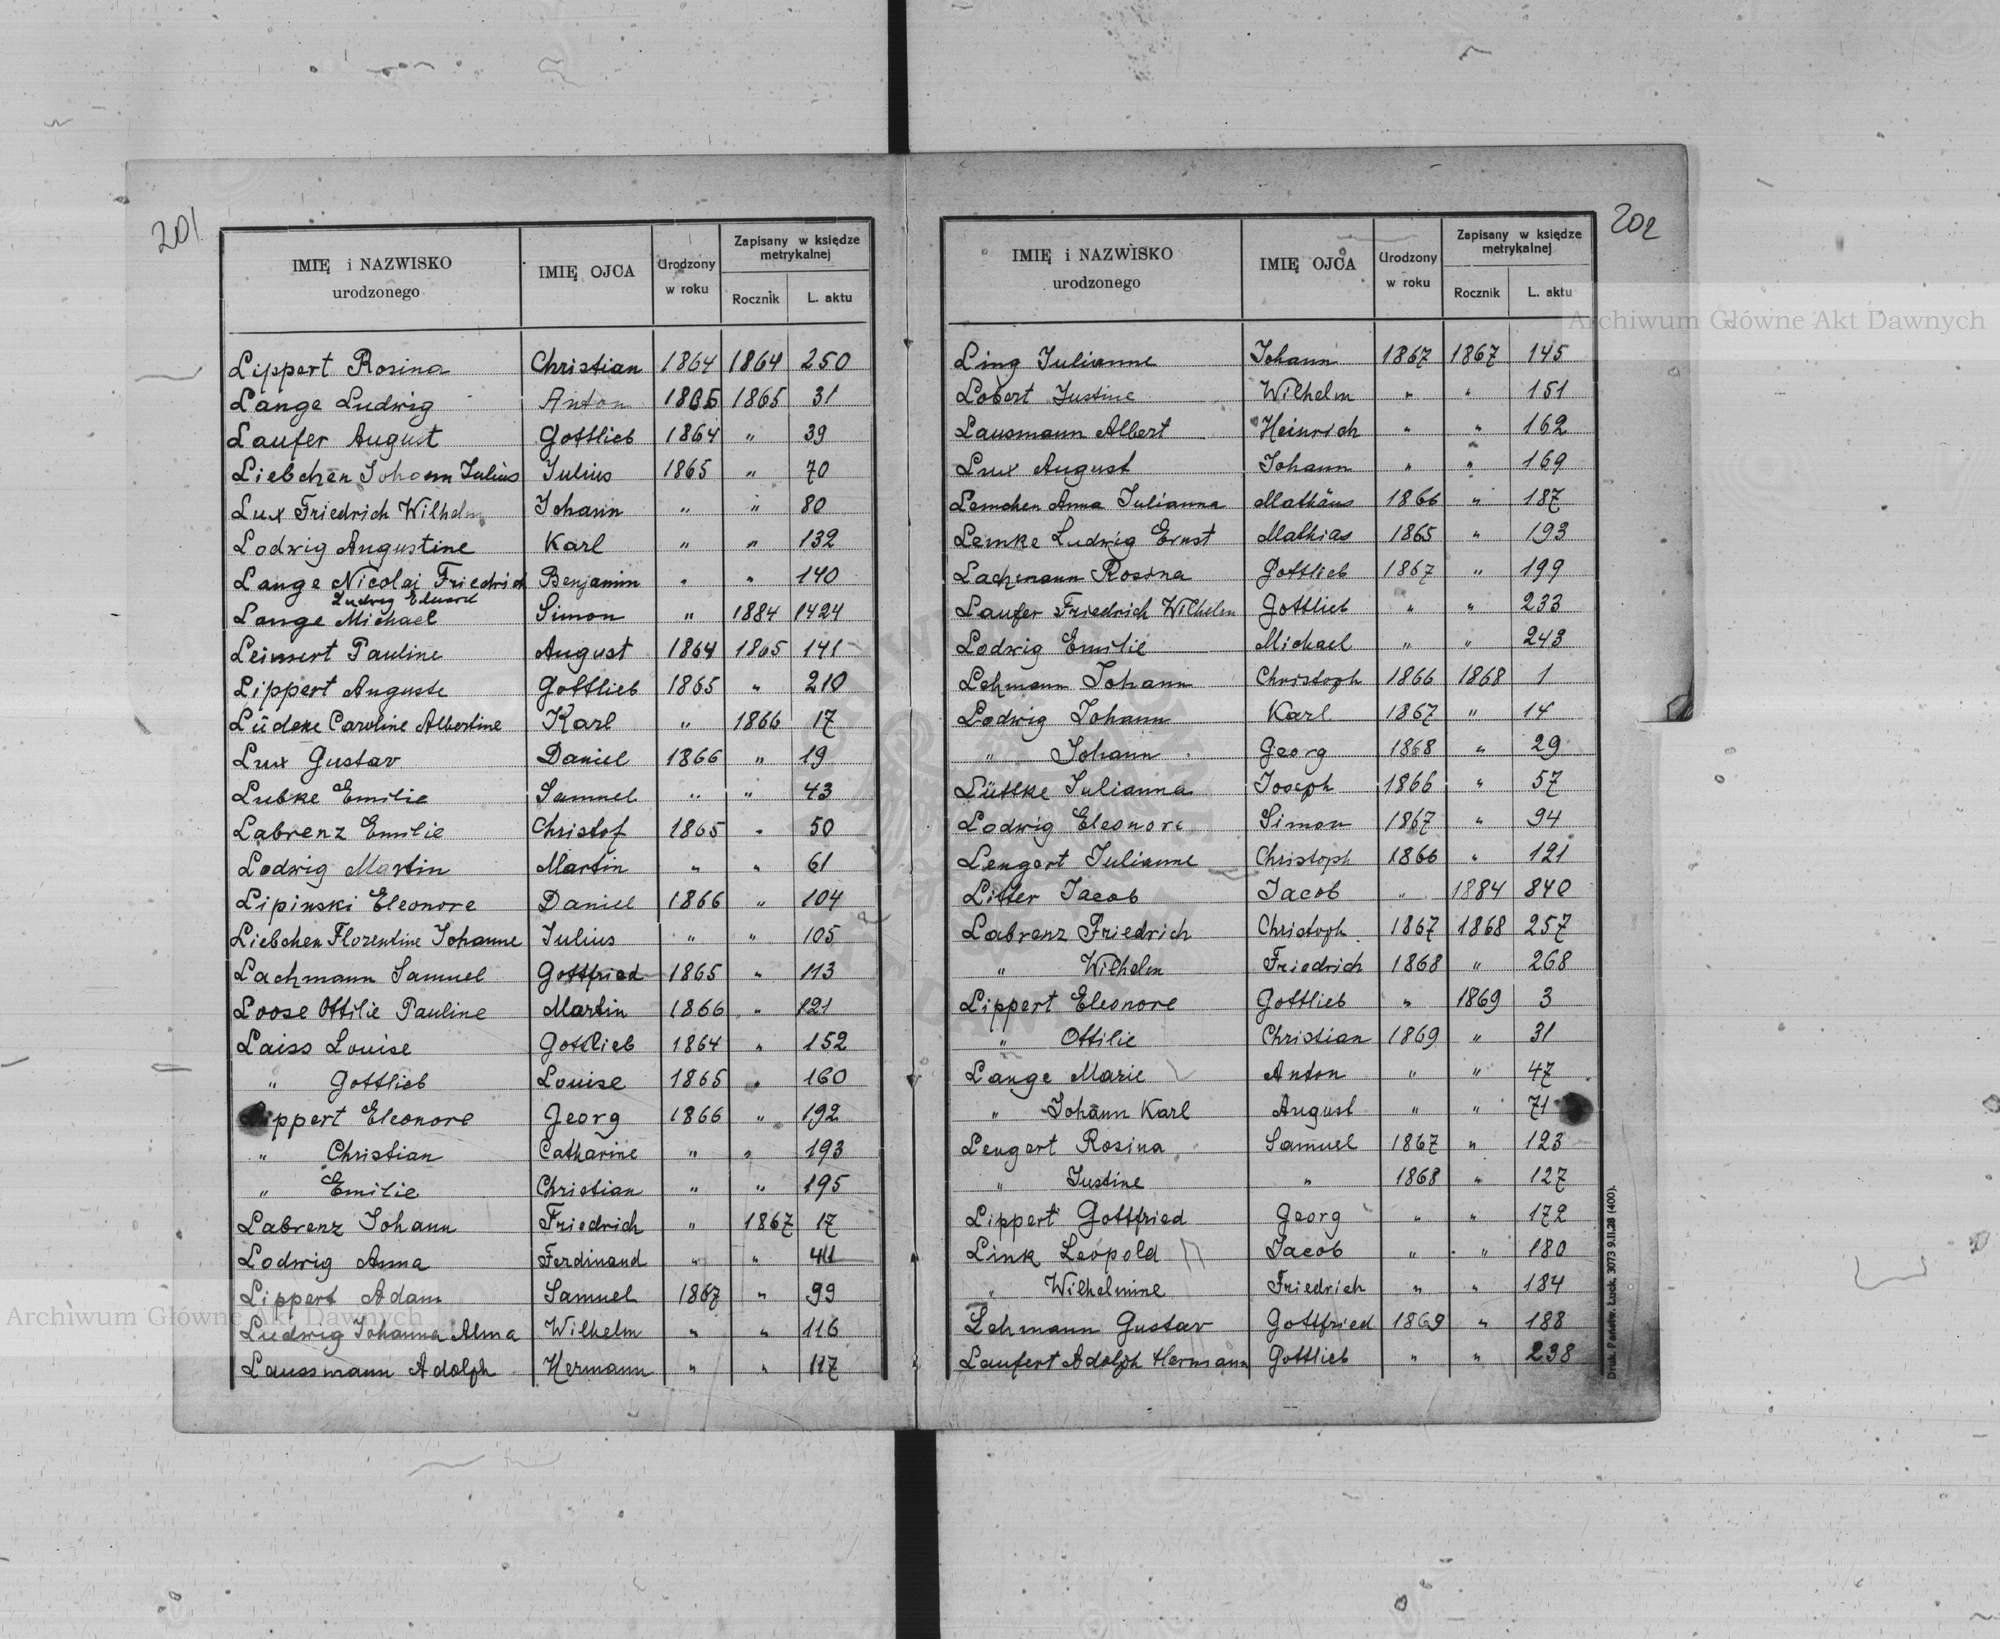 201
IMIĘ i NAZWISKO urodzonego | IMIĘ OJCA | Urodzony w roku | Zapisany w księdze metrykalnej
Rocznik | L. aktu
Lippert Rosina | Christian | 1864 | 1864 | 250
Lange Ludwig | Anton | 1865 | 1865 | 31
Laufer August | Gottlieb | 1864 | " | 39
Liebchen Johann Julius | Julius | 1865 | " | 70
Lux Friedrich Wilhelm | Johann | " | " | 80
Lodwig Augustine | Karl | " | " | 132
Lange Nicolai Friedrich | Benjamin | " | " | 140
Ludwig Eduard
Lange Michael | Simon | " | 1884 | 1424
Leinert Pauline | August | 1864 | 1865 | 141
Lippert Auguste | Gottlieb | 1865 | " | 210
Lüdeke Caroline Albertine | Karl | " | 1866 | 17
Lux Gustav | Daniel | 1866 | " | 19
Lubke Emilie | Samuel | " | " | 43
Labrenz Emilie | Christof | 1865 | " | 50
Lodwig Martin | Martin | " | " | 61
Lipinski Eleonore | Daniel | 1866 | " | 104
Liebchen Florentine Johanne | Julius | " | " | 105
Lachmann Samuel | Gottfried | 1865 | " | 113
Loose Ottilie Pauline | Martin | 1866 | " | 121
Laiss Louise | Gottlieb | 1864 | " | 152
" Gottlieb | Louise | 1865 | " | 160
Lippert Eleonore | Georg | 1866 | " | 192
" Christian | Catharine | " | " | 193
" Emilie | Christian | " | " | 195
Labrenz Johann | Friedrich | " | 1867 | 17
Lodwig Anna | Ferdinand | " | " | 41
Lippert Adam | Samuel | 1867 | " | 99
Ludwig Johanna Alma | Wilhelm | " | " | 116
Laussmann Adolph | Hermann | " | " | 117
202
IMIĘ i NAZWISKO urodzonego | IMIĘ OJCA | Urodzony w roku | Zapisany w księdze metrykalnej
Rocznik | L. aktu
Ling Julianne | Johann | 1867 | 1867 | 145
Lobert Justine | Wilhelm | " | " | 151
Lausmann Albert | Heinrich | " | " | 162
Lux August | Johann | " | " | 169
Lemchen Anna Julianna | Mathäus | 1866 | " | 187
Lemke Ludwig Ernst | Mathias | 1865 | " | 193
Lachmann Rosina | Gottlieb | 1867 | " | 199
Laufer Friedrich Wilhelm | Gottlieb | " | " | 233
Lodwig Emilie | Michael | " | " | 243
Lehmann Johann | Christoph | 1866 | 1868 | 1
Lodwig Johann | Karl | 1867 | " | 14
" Johann | Georg | 1868 | " | 29
Lüttke Julianna | Joseph | 1866 | " | 57
Lodwig Eleonore | Simon | 1867 | " | 94
Lengert Julianne | Christoph | 1866 | " | 121
Litter Jacob | Jacob | " | 1884 | 840
Labrenz Friedrich | Christoph | 1867 | 1868 | 257
" Wilhelm | Friedrich | 1868 | " | 268
Lippert Eleonore | Gottlieb | " | 1869 | 3
" Ottilie | Christian | 1869 | " | 31
Lange Marie | Anton | " | " | 47
" Johann Karl | August | " | " | 71
Lengert Rosina | Samuel | 1867 | " | 123
" Justine | " | 1868 | " | 127
Lippert Gottfried | Georg | " | " | 172
Link Leopold | Jacob | " | " | 180
" Wilhelmine | Friedrich | " | " | 184
Lehmann Gustav | Gottfried | 1869 | " | 188
Laufert Adolph Hermann | Gottlieb | " | " | 238
Druk. Państw. Łuck. 3073 9.II.28 (400).
Archiwum Główne Akt Dawnych
Archiwum Główne Akt Dawnych